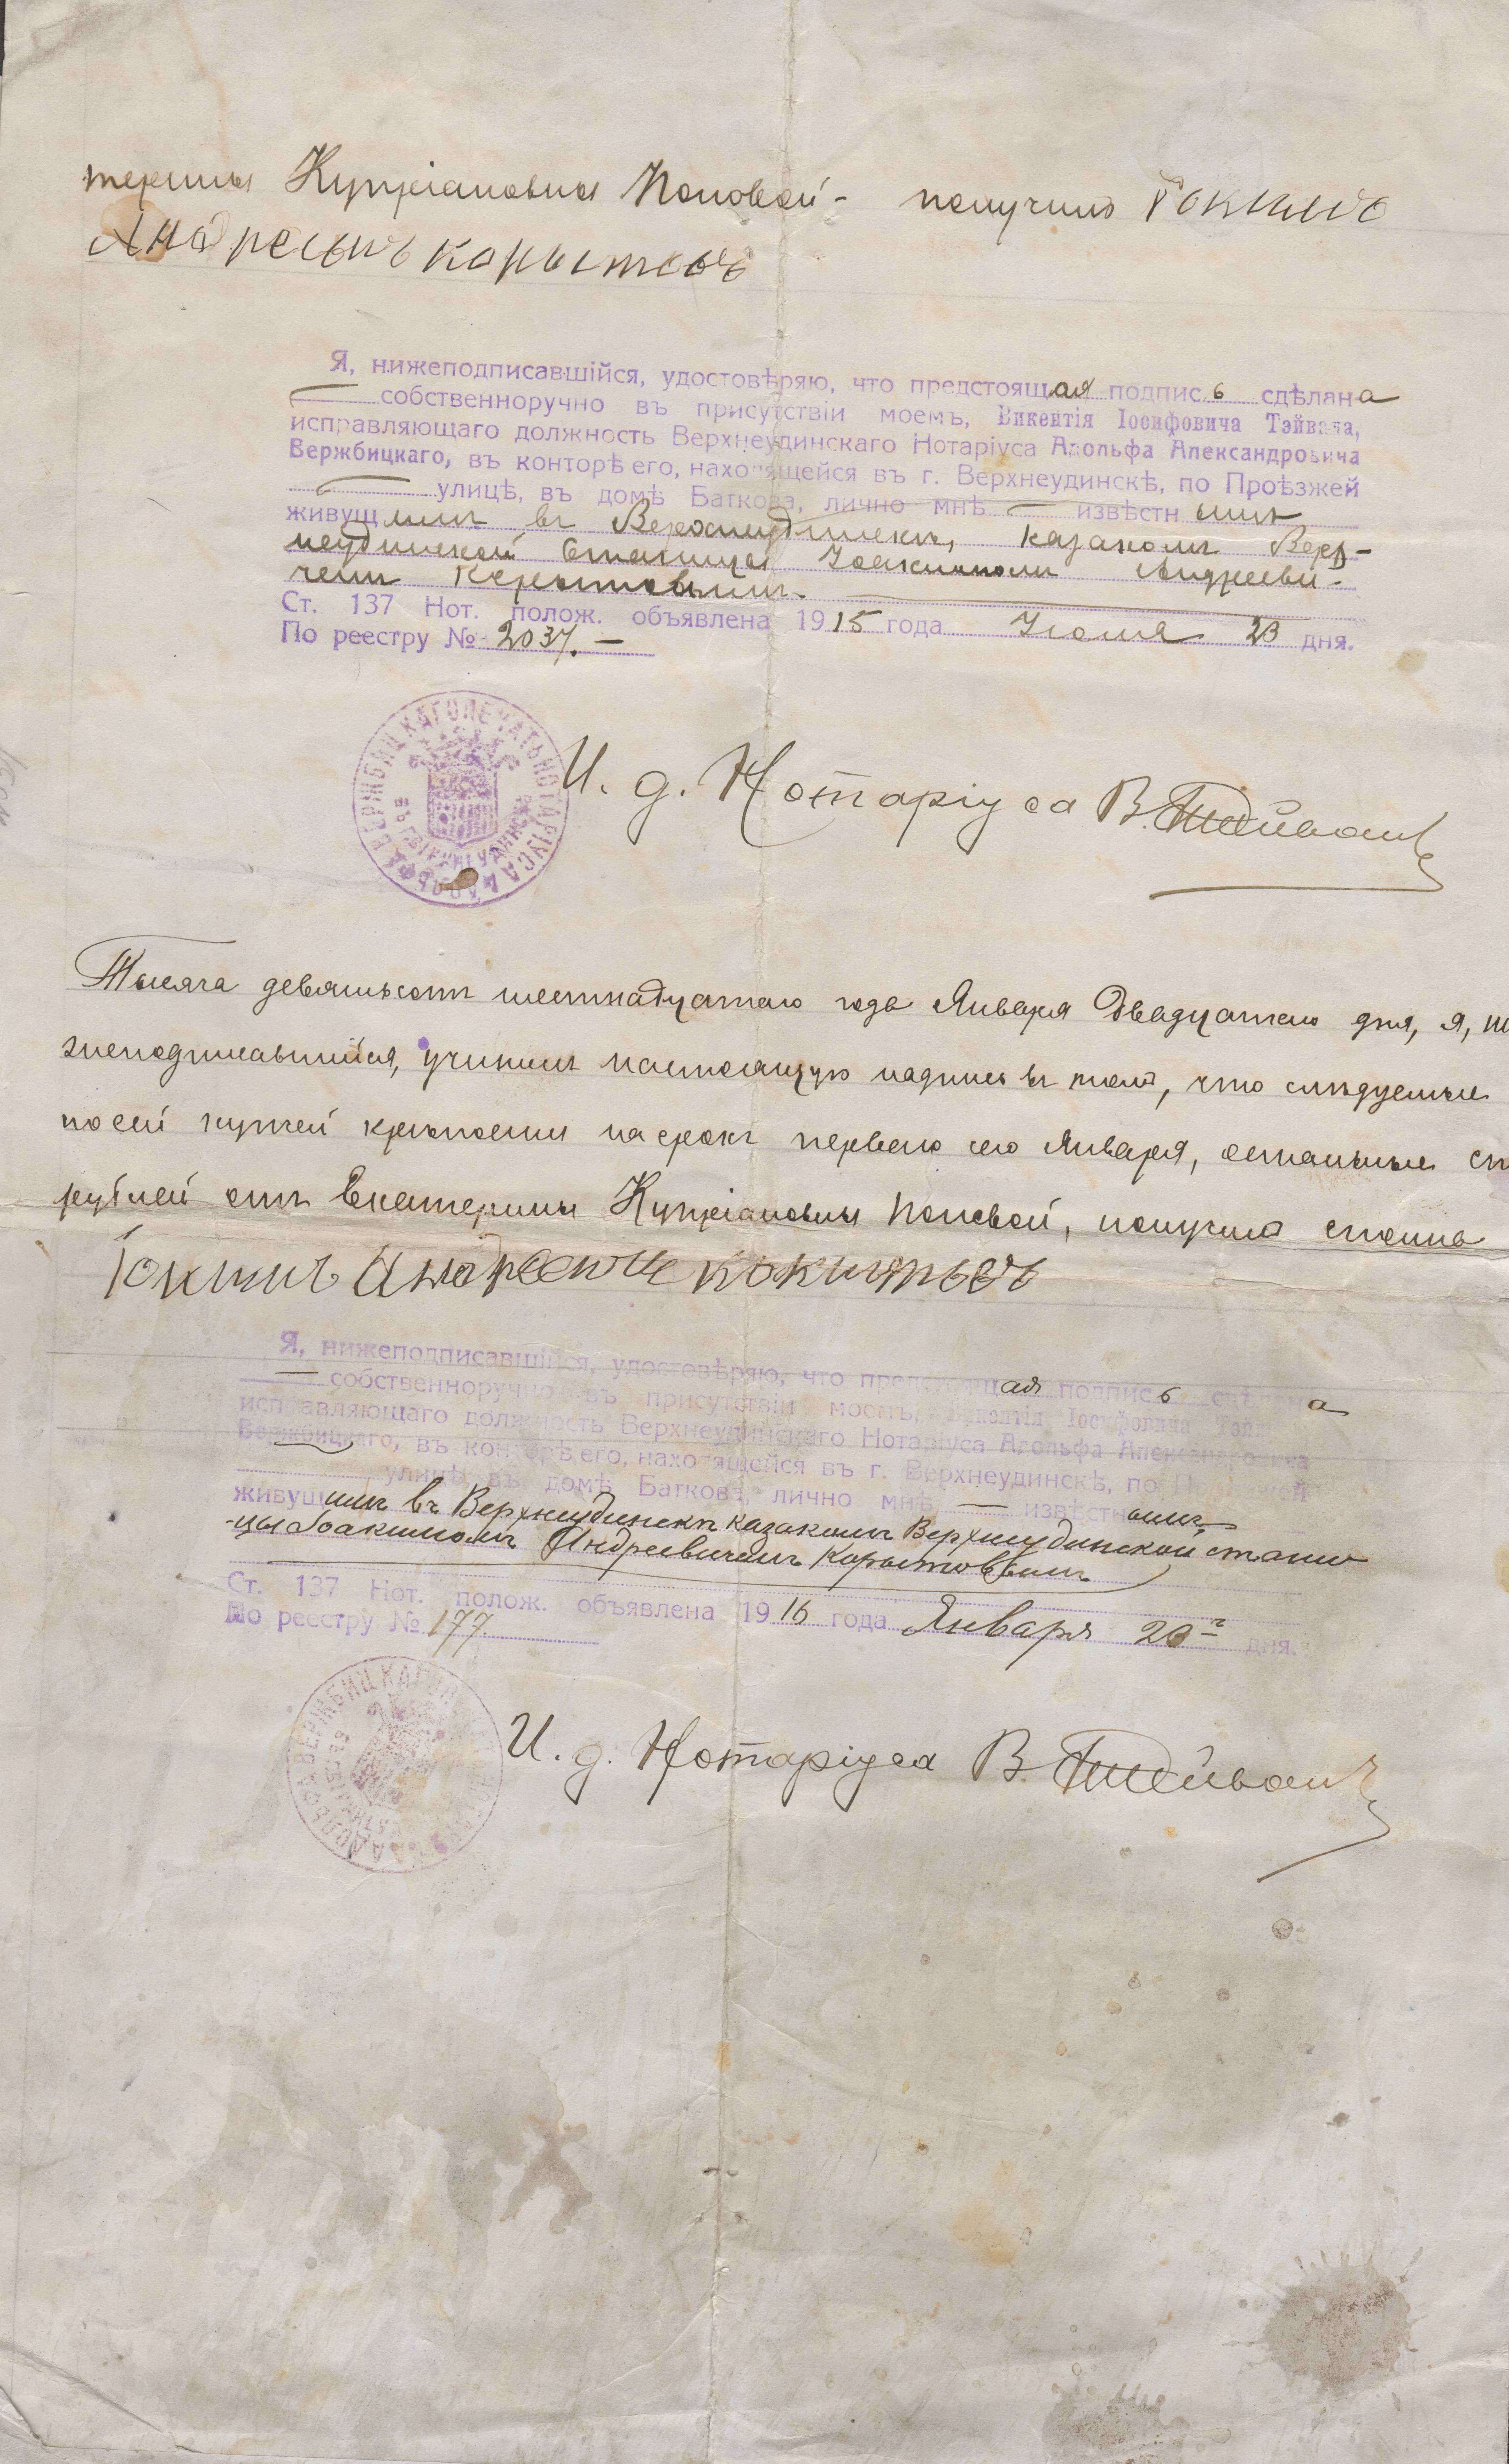 терины Купріановны Поповой - получилъ Іокимъ
Андреевичъ Корытовъ
Я, нижеподписавшійся, удостовѣряю, что предстоящая подпись сдѣлана
собственноручно въ присутствіи моемъ, Викентія Іосифовича Тэйвана,
исправляющаго должность Верхнеудинскаго Нотаріуса Адольфа Александровича
Вержбицкаго, въ конторѣ его, находящейся въ г. Верхнеудинскѣ, по Проѣзжей
улицѣ, въ домѣ Баткова, лично мнѣ — извѣстнымъ
живущимъ въ Верхнеудинскѣ, казакомъ Верх-
неудинской Станицы Іоакимомъ Андрееви-
чемъ Корытовымъ.
Ст. 137 Нот. полож. объявлена 1915 года Іюля 23 дня.
По реестру № 2037. —
ПЕЧАТЬ НОТАРІУСА АДОЛЬФА ВЕРЖБИЦКАГО
ВЪ Г. ВЕРХНЕУДИНСКѢ
И. д. Нотаріуса В. Тэйванъ
Тысяча девятьсотъ шестнадцатаго года Января Двадцатаго дня, я, ни
жеподписавшійся, учинилъ настоящую надпись въ томъ, что слѣдуемые
по сей купчей крѣпости на срокъ перваго сего Января, остальные ст
рублей отъ Екатерины Купріановны Поповой, получилъ сполна
Іокимъ Андреевичъ
Я, нижеподписавшійся, удостовѣряю, что предстоящая подпись сдѣлана
— собственноручно въ присутствіи моемъ, Викентія Іосифовича Тэйвана,
исправляющаго должность Верхнеудинскаго Нотаріуса Адольфа Александровича
Вержбицкаго, въ конторѣ его, находящейся въ г. Верхнеудинскѣ, по Проѣзжей
улицѣ, въ домѣ Баткова, лично мнѣ — извѣстнымъ,
живущимъ въ Верхнеудинскѣ казакомъ Верхнеудинской стани-
-цы Іоакимомъ Андреевичемъ Корытовымъ
Ст. 137 Нот. полож. объявлена 1916 года Января 20 дня.
По реестру № 177.
И. д. Нотаріуса В. Тэйванъ